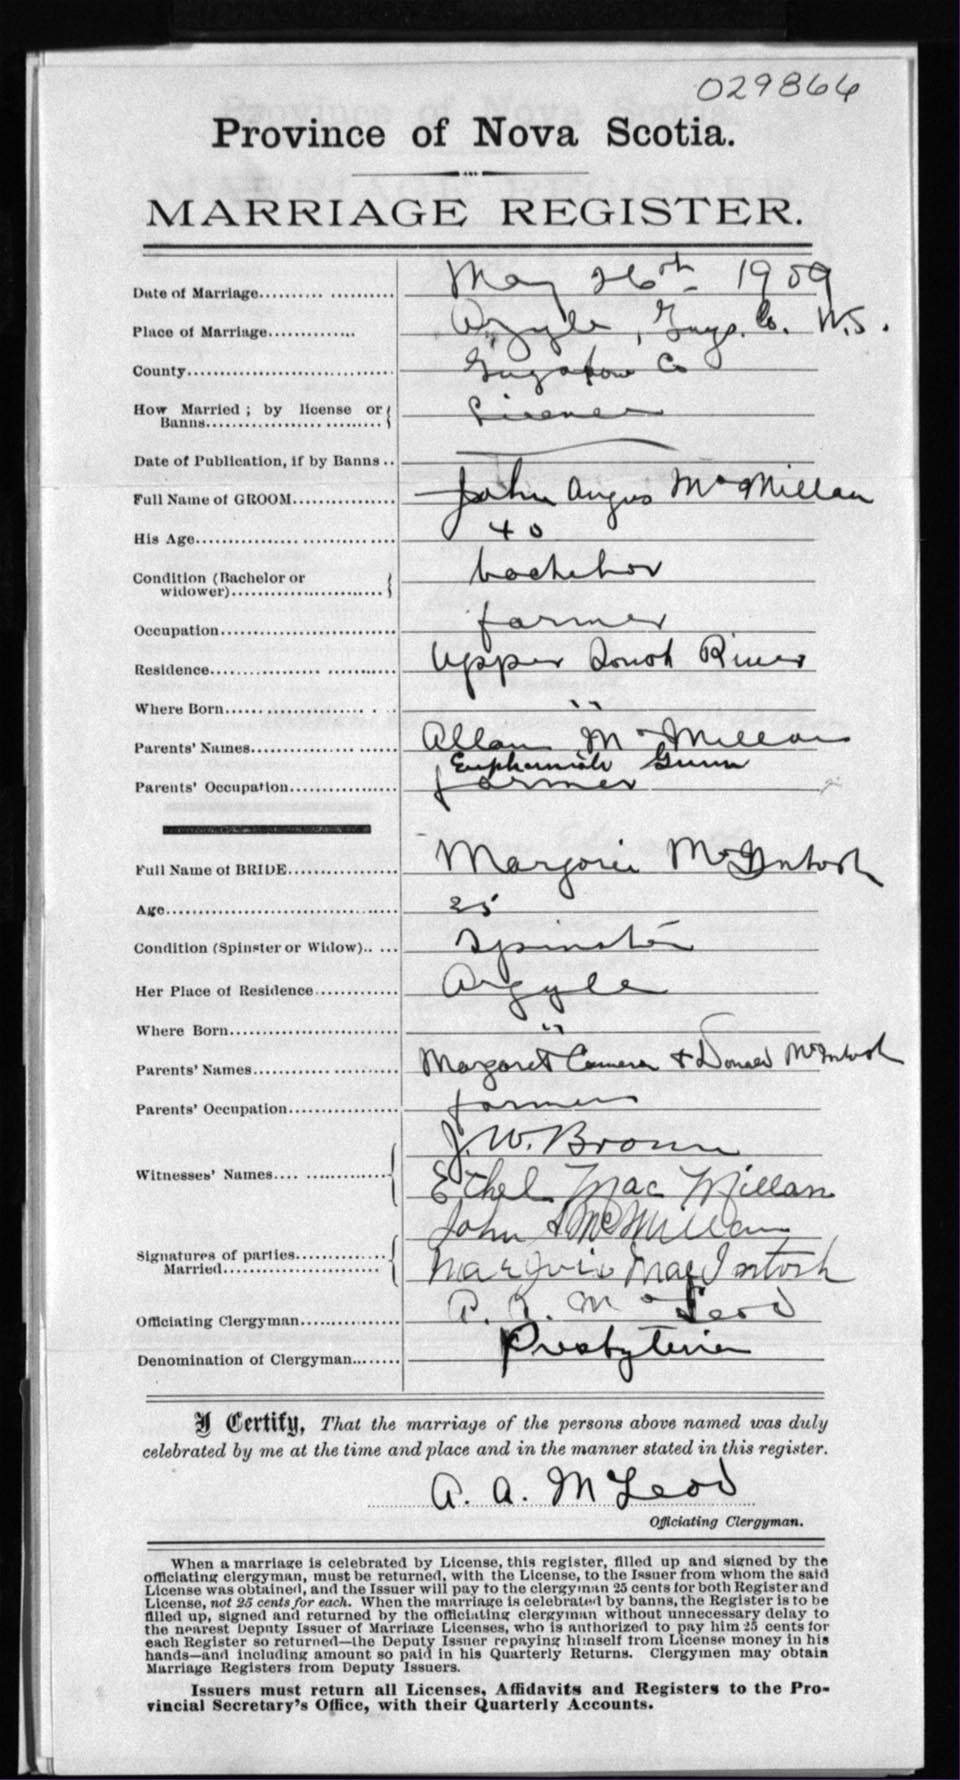 029864
Province of Nova Scotia.
MARRIAGE REGISTER.
Date of Marriage.................... May 26th 1909
Place of Marriage............. Argyle, Guys. Co. N.S.
County.............................. Co
How Married; by license or
Banns..................... License
Date of Publication, if by Banns..
Full Name of GROOM............... John Angus McMillan
His Age............................. 40
Condition (Bachelor or
widower)......................... bachelor
Occupation.......................... farmer
Residence........................... Upper South River
Where Born...................... "
Parents' Names..................... Allan McMillan
Euphemiah Gunn
Parents' Occupation............... farmer
Full Name of BRIDE................ Marjorie McIntosh
Age.................................. 25
Condition (Spinster or Widow)..... Spinster
Her Place of Residence............ Argyle
Where Born......................... "
Parents' Names.................... Margaret Cameron & Donald McIntosh
Parents' Occupation............... farmer
J. W. Brown
Witnesses' Names.................. Ethel MacMillan
John A McMillan
Signatures of parties.............
Married....................... MacIntosh
Officiating Clergyman.............. McLeod
Denomination of Clergyman........ Presbyterian
I Certify, That the marriage of the persons above named was duly
celebrated by me at the time and place and in the manner stated in this register.
A. A. McLeod
Officiating Clergyman.
When a marriage is celebrated by License, this register, filled up and signed by the
officiating clergyman, must be returned, with the License, to the Issuer from whom the said
License was obtained, and the Issuer will pay to the clergyman 25 cents for both Register and
License, not 25 cents for each. When the marriage is celebrated by banns, the Register is to be
filled up, signed and returned by the officiating clergyman without unnecessary delay to
the nearest Deputy Issuer of Marriage Licenses, who is authorized to pay him 25 cents for
each Register so returned—the Deputy Issuer repaying himself from License money in his
hands—and including amount so paid in his Quarterly Returns. Clergymen may obtain
Marriage Registers from Deputy Issuers.
Issuers must return all Licenses, Affidavits and Registers to the Pro-
vincial Secretary's Office, with their Quarterly Accounts.